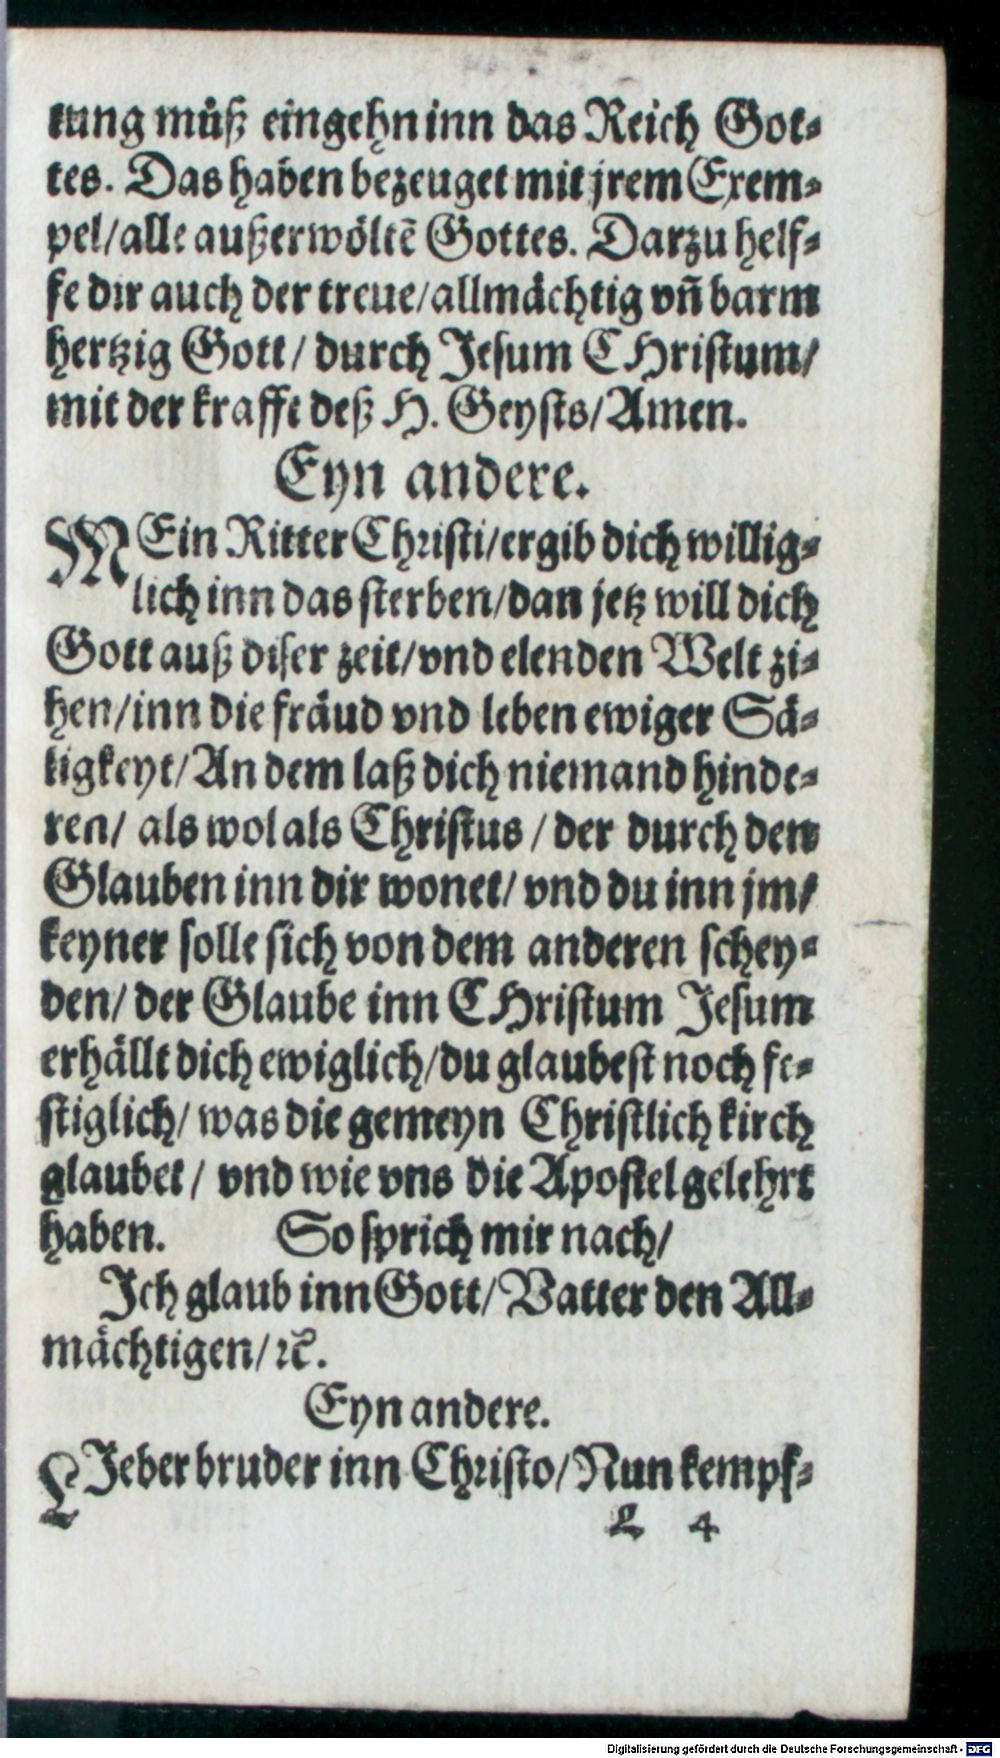 tung můß eingehn inn das Reich Got⸗
tes. Das haben bezeuget mit jrem Exem⸗
pel/alle außerwöltē Gottes. Darzu helf⸗
fe dir auch der treue/allmächtig vñ barm
hertzig Gott/ durch Jesum CHristum/
mit der krafft deß H. Geysts/Amen.
Eyn andere.
MEin Ritter Christi/ergib dich willig⸗
lich inn das sterben/dan jetz will dich
Gott auß diser zeit/vnd elenden Welt zi⸗
hen/inn die fräud vnd leben ewiger Sä⸗
ligkeyt/An dem laß dich niemand hinde⸗
ren/ als wol als Christus / der durch den
Glauben inn dir wonet/ vnd du inn jm/
keyner solle sich von dem anderen schey⸗
den/ der Glaube inn CHristum Jesum
erhällt dich ewiglich/du glaubest noch fe⸗
stiglich/ was die gemeyn Christlich kirch
glaubet/ vnd wie vns die Apostel gelehrt
haben. So sprich mir nach/
Jch glaub inn Gott/Vatter den All⸗
mächtigen/ ꝛc̃.
Eyn andere.
LJeber bruder inn Christo/Nun kempf⸗
L 4
Digitalisierung gefördert durch die Deutsche Forschungsgemeinschaft - DFG